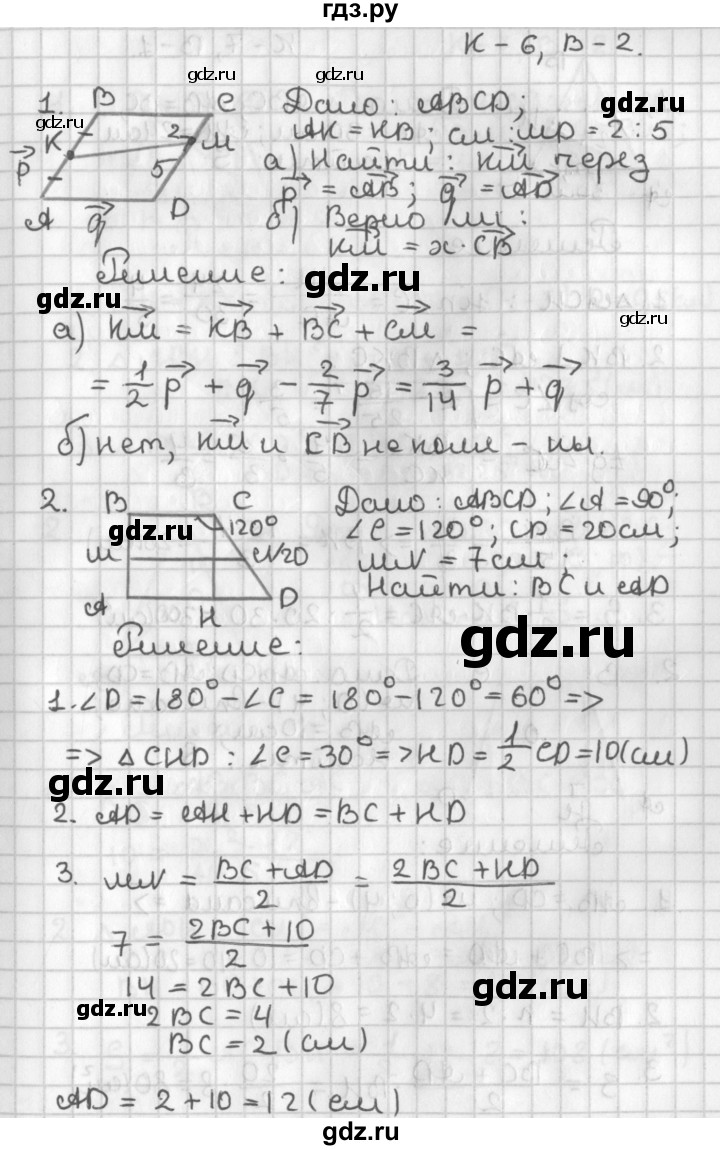 гдз.ру
К – 6, В – 2.
gdz.ru
gdz.ru
1. B C Дано: ABCD;
gdz.ru
gdz.ru
K 2 M AK = KB; CM : MD = 2 : 5
p 5 а) Найти: KM через
A q D p = AB; q = AD
б) Верно ли:
KM = x · CB
Решение:
gdz.ru
gdz.ru
gdz.ru
а) KM = KB + BC + CM =
= 1/2 p + q – 2/7 p = 3/14 p + q
б) нет, KM и CB не колл – ны.
2. B C Дано: ABCD; ∠A = 90°;
gdz.ru
120° ∠C = 120°; CD = 20см;
M N 20 MN = 7см;
A H D Найти: BC и AD
gdz.ru
Решение:
1. ∠D = 180° – ∠C = 180° – 120° = 60° =>
=> △CHD : ∠C = 30° => HD = 1/2 CD = 10(см)
gdz.ru
2. AD = AH + HD = BC + HD
3. MN = BC + AD / 2 = 2BC + HD / 2
7 = 2BC + 10 / 2
14 = 2BC + 10
gdz.ru
gdz.ru
2BC = 4
BC = 2 (см)
AD = 2 + 10 = 12 (см)
gdz.ru